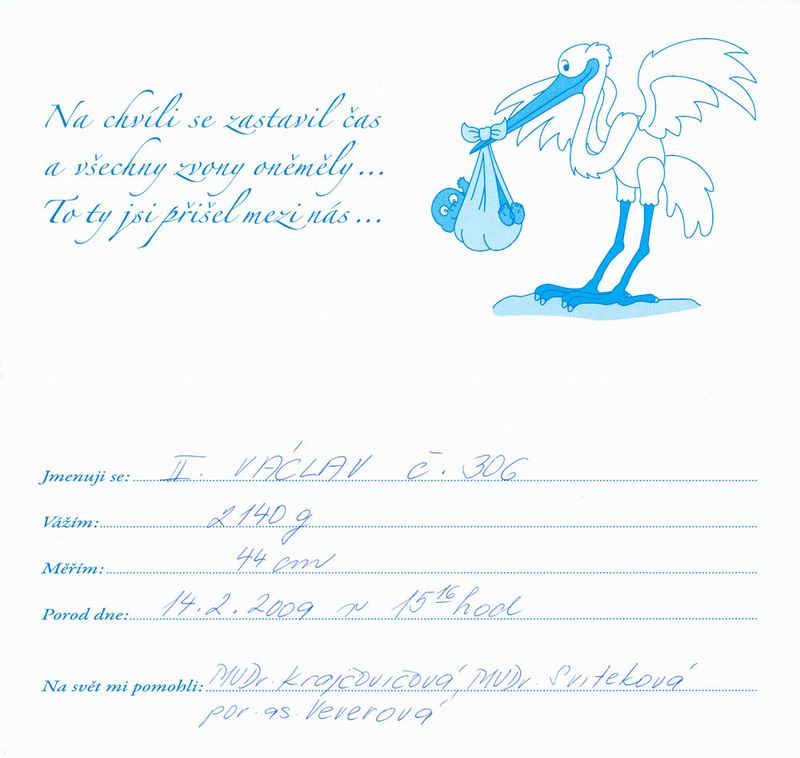 Na chvíli se zastavil čas
a všechny zvony oněměly...
To ty jsi přišel mezi nás...
Jmenuji se: II. VÁCLAV č. 306
Vážím: 2140 g
Měřím: 44 cm
Porod dne: 14.2.2009 v 15 16 hod
Na svět mi pomohli: MUDr. Krajčovičová, MUDr. Sviteková
por. as. Veverová